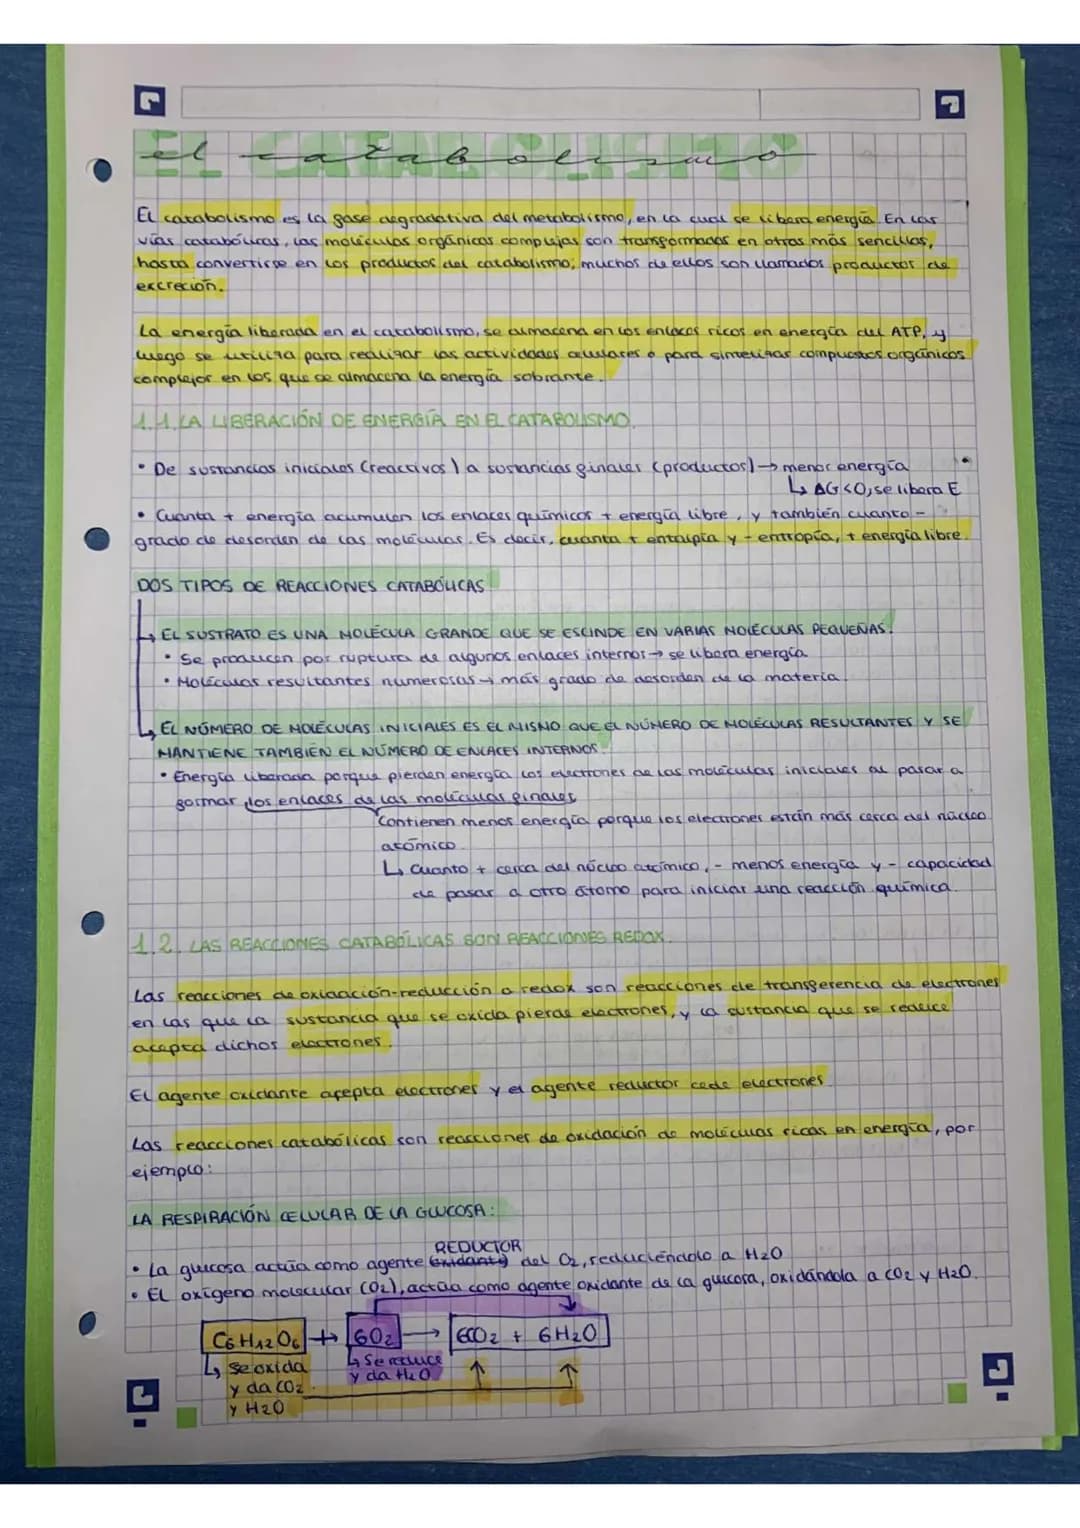 EL CATABOLISMO
el catabolismo
El catabolismo es la fase degradativa del metabolismo, en la cual se libera energía. En las
vías catabólicas, las moléculas orgánicas complejas son transformadas en otras más sencillas,
hasta convertirse en los productos del catabolismo; muchos de ellos son llamados productos de
excreción.
La energía liberada en el catabolismo, se almacena en los enlaces ricos en energía del ATP, y
luego se utiliza para realizar las actividades celulares o para sintetizar compuestos orgánicos
complejos en los que se almacena la energía sobrante.
1.1. LA LIBERACIÓN DE ENERGÍA EN EL CATABOLISMO.
• De sustancias iniciales (reactivos) a sustancias finales (productos) → menor energía
↳ ΔG<0, se libera E
• Cuanta + energía acumulen los enlaces químicos + energía libre, y también cuanto -
grado de desorden de las moléculas. Es decir, cuanta + entalpía y - entropía, + energía libre.
DOS TIPOS DE REACCIONES CATABÓLICAS
↳ EL SUSTRATO ES UNA MOLÉCULA GRANDE QUE SE ESCINDE EN VARIAS MOLÉCULAS PEQUEÑAS.
• Se producen por ruptura de algunos enlaces internos → se libera energía
• Moléculas resultantes numerosas → más grado de desorden de la materia.
↳ EL NÚMERO DE MOLÉCULAS INICIALES ES EL MISMO QUE EL NÚMERO DE MOLÉCULAS RESULTANTES Y SE
MANTIENE TAMBIÉN EL NÚMERO DE ENLACES INTERNOS.
• Energía liberada porque pierden energía los electrones de las moléculas iniciales al pasar a
formar los enlaces de las moléculas finales
Contienen menos energía porque los electrones están más cerca del núcleo
atómico.
↳ Cuanto + cerca del núcleo atómico, - menos energía y - capacidad
de pasar a otro átomo para iniciar una reacción química.
1.2. LAS REACCIONES CATABÓLICAS SON REACCIONES REDOX.
Las reacciones de oxidación-reducción o redox son reacciones de transferencia de electrones
en las que la sustancia que se oxida pierde electrones, y la sustancia que se reduce
acepta dichos electrones.
El agente oxidante acepta electrones y el agente reductor cede electrones.
Las reacciones catabólicas son reacciones de oxidación de moléculas ricas en energía, por
ejemplo:
LA RESPIRACIÓN CELULAR DE LA GLUCOSA:
REDUCTOR
• La glucosa actúa como agente oxidante del O2, reduciéndolo a H2O
• El oxígeno molecular (O2), actúa como agente oxidante de la glucosa, oxidándola a CO2 y H2O.
C6H12O6 + 6O2 → 6CO2 + 6H2O
↳ se oxida
y da CO2
y H2O
↳ Se reduce
y da H2O